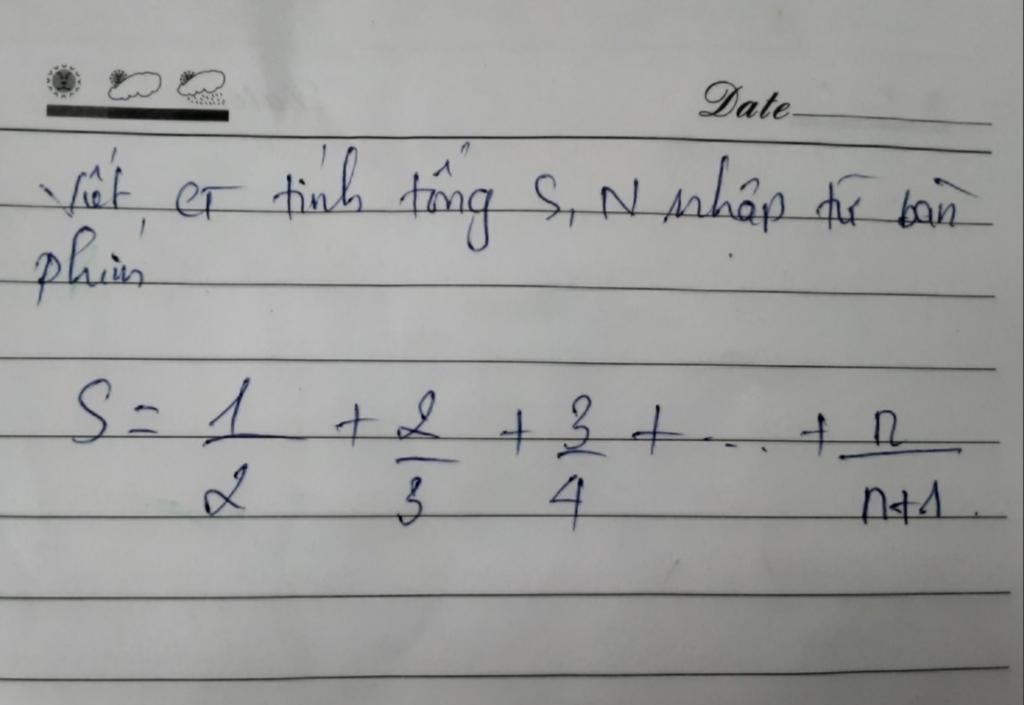 Date
Viết CT tính tổng S, N nhập từ bàn
phím
S = 1/2 + 2/3 + 3/4 + ... + n/n+1